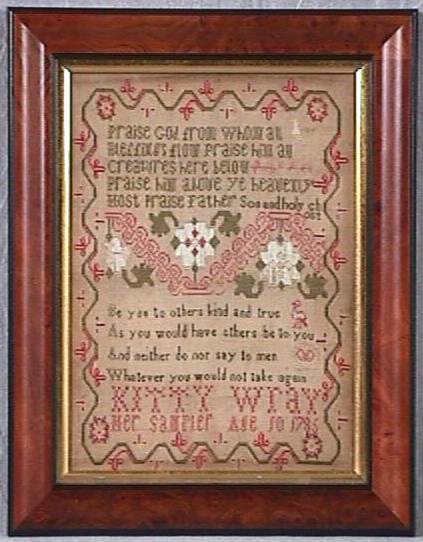 Praise God from whom all
Bleſsings flow Praise him all
Creatures here below
Praise him above ye heavenly
Host Praise Father Son and holy gh
ost
Be you to others kind and true
As you would have others be to you
And neither do nor say to men
Whatever you would not take again
KITTY Wray
Her Sampler Age 10